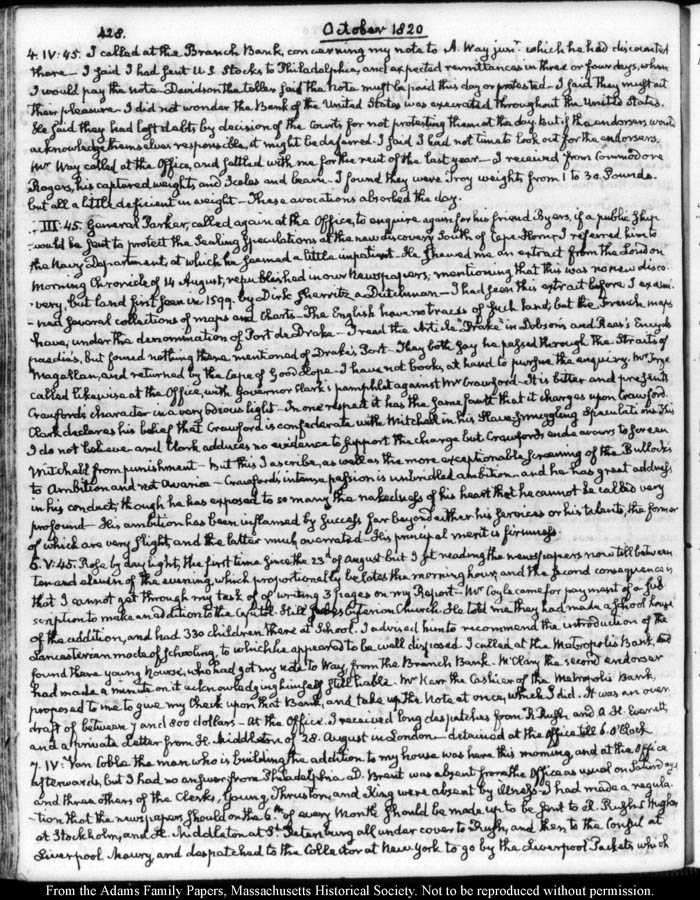 428. October 1820
4. IV:45. I called at the Branch Bank, concerning my note to A. Way junr. which he had discounted
there — I said I had sent U.S. Stocks to Philadelphia, and expected remittances in three or four days, when
I would pay the note — Davidson the teller said the Note must be paid this day or protested — I said they must act
their pleasure — I did not wonder the Bank of the United States was execrated throughout the United States.
He said they had lost debts by decision of the Courts for not protesting them at the day but if the endorsers would
acknowledge themselves responsible, it might be deferred. I said I had not time to look out for the endorsers.
Mr Way called at the Office, and settled with me for the rent of the last year — I received from Commodore
Rogers, his captured weights, and Scales and beam. I found they were Troy weights from 1 to 30 Pounds.
but all a little deficient in weight — These avocations absorbed the day.
III:45. General Parker, called again at the Office, to enquire again for his friend Byers, if a public Ship
would be sent to protect the Sealing speculations at the new discovery South of Cape Horn; I referred him to
the Navy Department, at which he seemed a little impatient. He shewed me an extract from the London
Morning Chronicle of 14 August, republished in our Newspapers, mentioning that this was no new disco-
-very, but land first seen in 1599. by Dirk Gherritz a Dutchman — I had seen this extract before. I exami-
-ned several collections of maps and Charts — The English have no traces of such land; but the French maps
have, under the denomination of Port de Drake — I read the Article "Drake" in Dobson's and Rees's Encyclo
paedia's, but found nothing there mentioned of Drake's Port — They both say he passed through the Straits of
Magellan, and returned by the Cape of Good Hope. I have not books, at hand to pursue the enquiry. Mr
called likewise at the Office, with Governor Clark's pamphlet against Mr Crawford — It is bitter and presents
Crawford's character in a very odious light — In one respect it has the same fault that it charges upon Crawford.
Clark declares his belief that Crawford is confederate with Mitchell in his Slave smuggling speculations. This
I do not believe and Clark adduces no evidence to support the charge but Crawford's endeavours to screen
Mitchell from punishment — But this I ascribe, as well as the more exceptionable screening of the Bullocks
to Ambition and not Avarice — Crawford's intense passion is unbridled ambition — and he has great address
in his conduct; though he has exposed to so many the nakedness of his heart that he cannot be called very
profound — His ambition has been inflamed by success far beyond either his services or his talents, the former
of which are very slight, and the latter much overrated — His principal merit is firmness.
6. V:45. Rose by day light, the first time since the 23d of August but I sit reading the newspapers now till between
ten and eleven of the evening, which proportionally belates the morning hour; and the second consequence is
that I cannot get through my task of writing 3 pages on my Report — Mr Coyle came for payment of a sub-
scription to make an addition to the Capitol Hill Presbyterian Church. He told me they had made a school house
of the addition, and had 330 children there at School. I advised him to recommend the introduction of the
Lancasterian mode of schooling, to which he appeared to be well disposed. I called at the Metropolis Bank, and
found there young House, who had got my note to Way, from the Branch Bank. McClary the second endorser
had made a minute on it acknowledging himself still liable. Mr Kerr the Cashier of the Metropolis Bank,
proposed to me to give my Check upon that Bank, and take up the Note at once, which I did. It was an over
draft of between 7 and 800 dollars — At the Office. I received long despatches from R. Rush and A. H. Everett,
and a private Letter from H. Middleton of 28. August in London — detained at the office till 6. O'Clock
7. IV: Van Coble the man who is building the addition to my house was here this morning, and at the Office
afterwards, but I had no answer from Philadelphia. D. Brent was absent from the Office as usual on Saturdays
and three others of the Clerks, Young, Thruston, and King were absent by illness — I had made a regula-
-tion that the newspapers should on the 6th of every Month should be made up to be sent to R. Rush, Hughes
at Stockholm, and H. Middleton at St Petersburg all under cover to Rush, and then to the Consul at
Liverpool Maury, and despatched to the Collector at New York to go by the Liverpool Packets, which
From the Adams Family Papers, Massachusetts Historical Society. Not to be reproduced without permission.